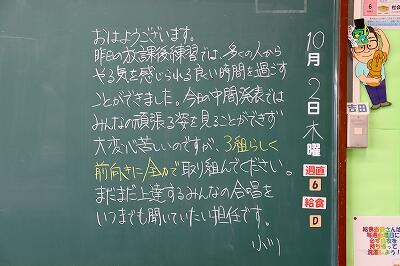 おはようございます。
昨日の放課後練習では、多くの人から
やる気を感じられる良い時間を過ごす
ことができました。今日の中間発表では
みんなの頑張る姿を見ることができず
大変心苦しいのですが、3組らしく
前向きに全力で取り組んでください。
まだまだ上達するみんなの合唱を
いつまでも聞いていたい担任です。
小川
10月2日木曜
週直
6
給食
D
吉田
給食